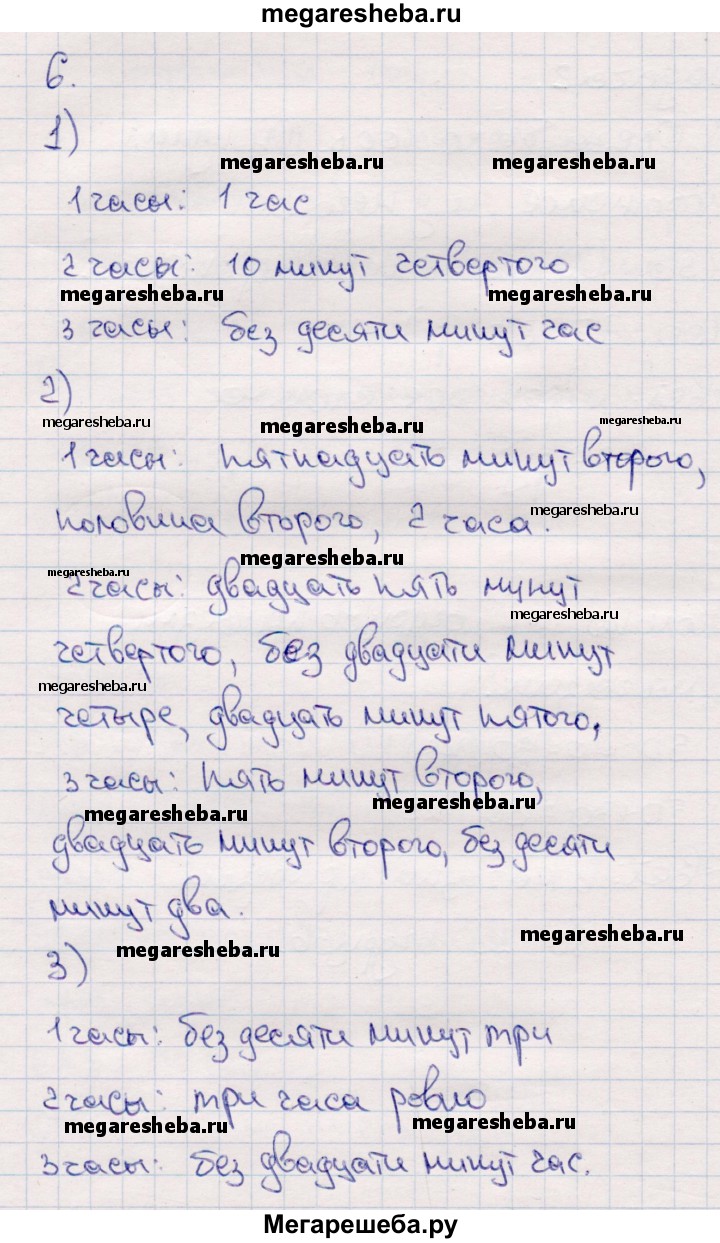 megaresheba.ru
6.
1)
megaresheba.ru megaresheba.ru
1 часы: 1 час
2 часы: 10 минут четвертого
megaresheba.ru megaresheba.ru
3 часы: без десяти минут час
2)
megaresheba.ru megaresheba.ru megaresheba.ru
1 часы: пятнадцать минут второго,
половина второго, 2 часа.
megaresheba.ru
megaresheba.ru megaresheba.ru
2 часы: двадцать пять мунут
megaresheba.ru
четвертого, без двадцати минут
megaresheba.ru
четыре, двадцать минут пятого,
3 часы: пять минут второго,
megaresheba.ru megaresheba.ru
двадцать минут второго, без десяти
минут два.
megaresheba.ru megaresheba.ru
3)
1 часы: без десяти минут три
2 часы: три часа ровно
megaresheba.ru megaresheba.ru
3 часы: без двадцати минут час.
Мегарешеба.ру